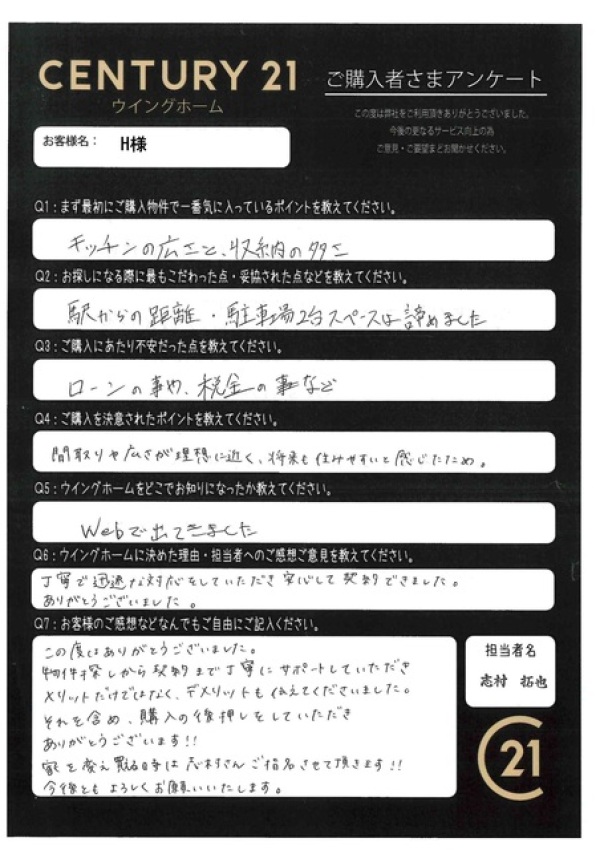 CENTURY 21
ウイングホーム
ご購入者さまアンケート
この度は弊社をご利用頂きありがとうございました。
今後の更なるサービス向上の為
ご意見・ご要望をお聞かせください。
お客様名： H様
Q1：まず最初にご購入物件で一番気に入っているポイントを教えてください。
キッチンの広さと、収納の多さ
Q2：お探しになる際に最もこだわった点・妥協された点などを教えてください。
駅からの距離・駐車場2台スペースは諦めました
Q3：ご購入にあたり不安だった点を教えてください。
ローンの事や、税金の事など
Q4：ご購入を決意されたポイントを教えてください。
間取りや広さが理想に近く、将来も住みやすいと感じたため。
Q5：ウイングホームをどこでお知りになったか教えてください。
Webで出てきました
Q6：ウイングホームに決めた理由・担当者へのご感想ご意見を教えてください。
丁寧で迅速な対応をしていただき安心して契約できました。
ありがとうございました。
Q7：お客様のご感想などなんでもご自由にご記入ください。
この度はありがとうございました。
物件探しから契約まで丁寧にサポートしていただき
メリットだけではなく、デメリットも伝えてくださいました。
それを含め、購入の後押しをしていただき
ありがとうございます!!
家を 買る時は志村さんご指名させて頂きます!!
今後ともよろしくお願いいたします。
担当者名
志村 拓也
C21